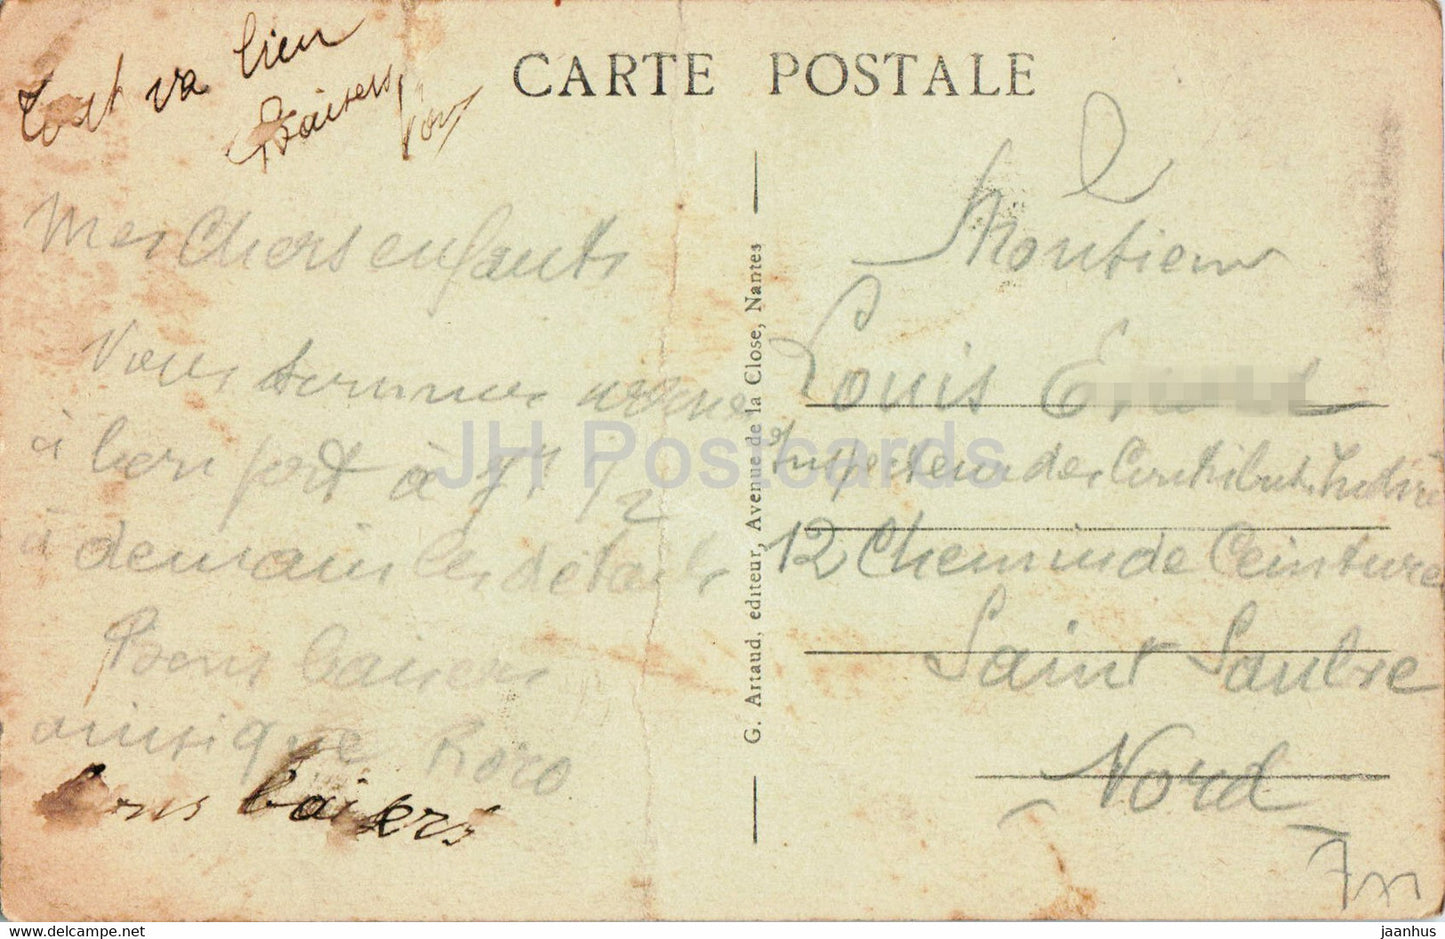 CARTE POSTALE
Tout va bien
Baisers
Mes Chers enfants
Nous sommes
à bon port à 9h 1/2
à demain les détails
Bons baisers
ainsi que Roro
bons baisers
G. Artaud, editeur, Avenue de la Close, Nantes
Monsieur
Louis
Inspecteur des Contribut. Indir
12 Chemin de Ceinture
Saint Saulve
Nord
JH Postcards
www.delcampe.net
jaanhus